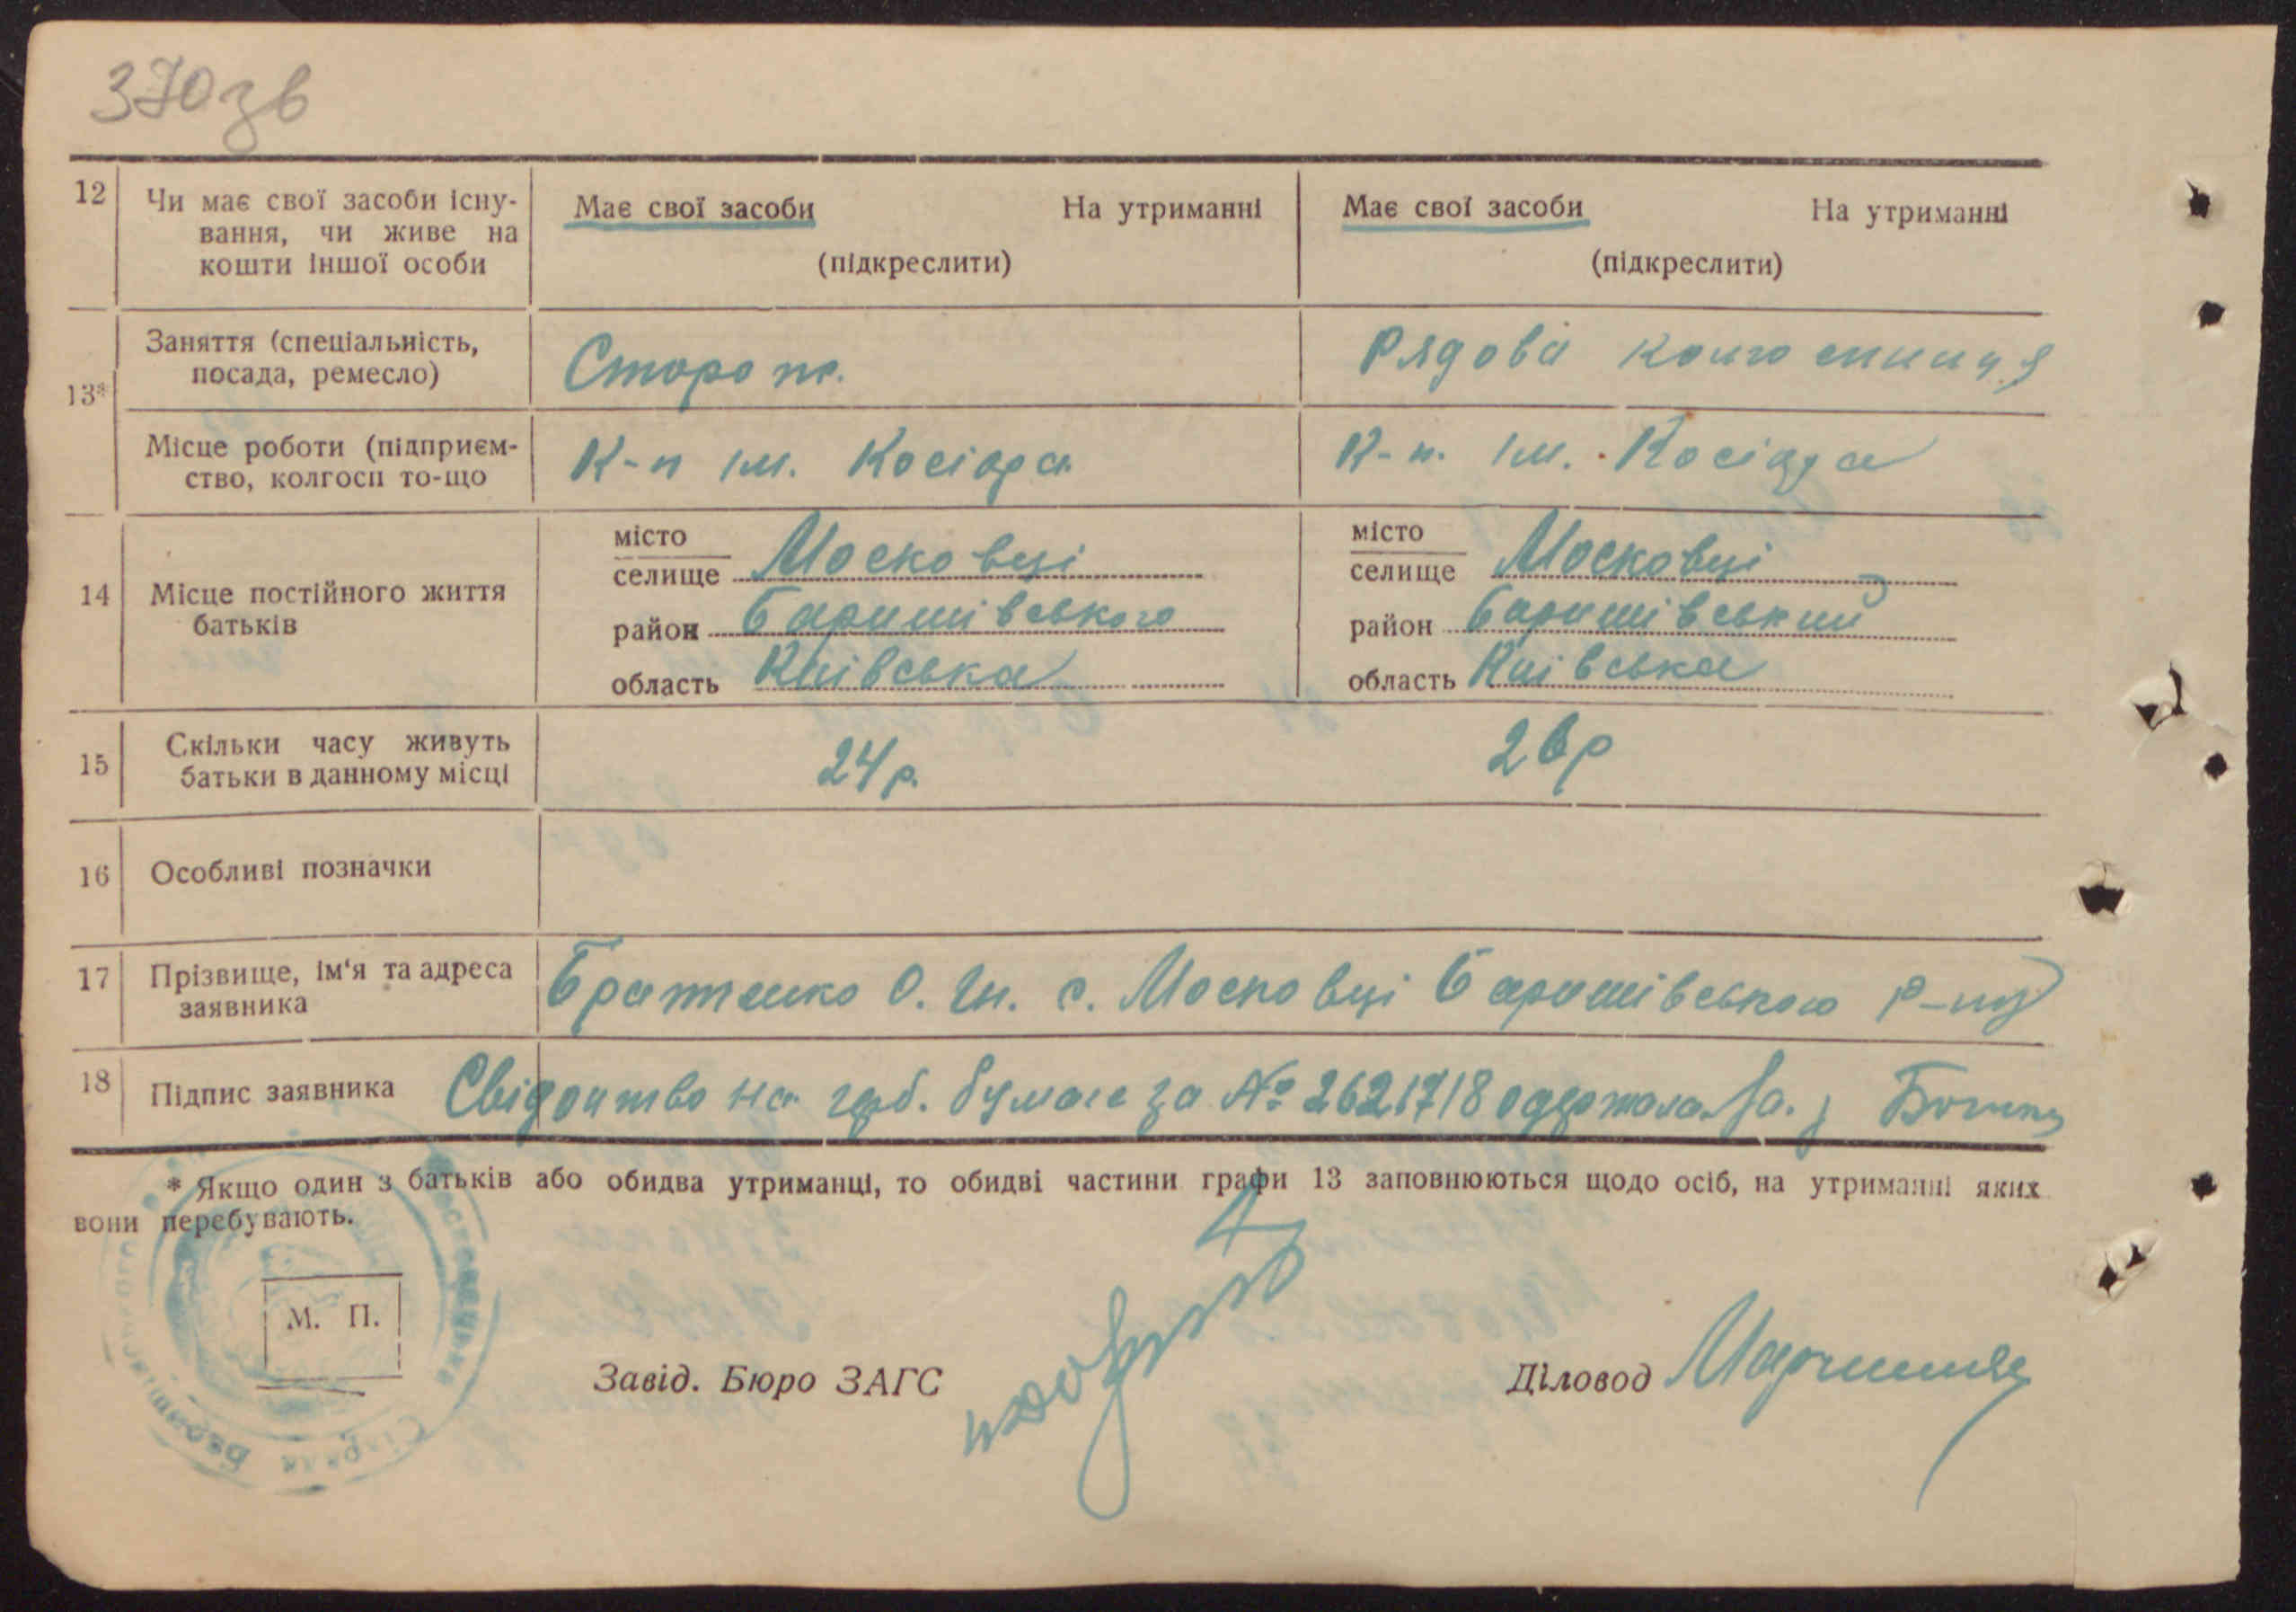 370 зв
12 Чи має свої засоби існу- Має свої засоби На утриманні Має свої засоби На утриманні
вання, чи живе на
кошти іншої особи (підкреслити) (підкреслити)
13* Заняття (спеціальність, Сторож. Рядова
посада, ремесло)
Місце роботи (підприєм- К-п ім. Косіора К-п. ім. Косіора
ство, колгосп то-що
14 Місце постійного життя батьків
місто
селище Московці
район Баришівського
область Київська
місто
селище Московці
район Баришівський
область Київська
15 Скільки часу живуть 24 р. 26 р
батьки в данному місці
16 Особливі позначки
17 Прізвище, ім'я та адреса Братенко О. Гн. с. Московці Баришівського р-ну
заявника
18 Підпис заявника Свідоцтво на герб. бумаге за № 2621718 одержала
* Якщо один з батьків або обидва утриманці, то обидві частини графи 13 заповнюються щодо осіб, на утриманні яких
вони перебувають.
М. П.
Завід. Бюро ЗАГС Діловод